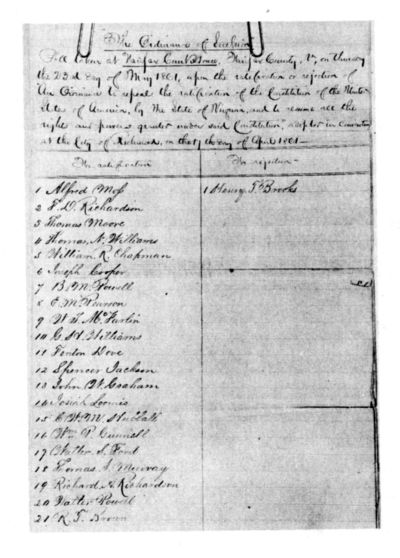 The Ordinance of Secession
Poll taken at Fairfax Court House, Fairfax County, Va, on Thursday
the 23rd day of May 1861, upon the ratification or rejection of
"An Ordinance to repeal the ratification of the Constitution of the United
States of America, by the State of Virginia, and to resume all the
rights and powers granted under said Constitution," adopted in Convention
at the City of Richmond, on the 17th day of April 1861.
For ratification For rejection
1 Alfred Moss 1 Henry T. Brooks
2 F. D. Richardson
3 Thomas Moore
4 Thomas N. Williams
5 William R. Chapman
6 Joseph Cooper
7 B. M. Powell
8 C. M. Pearson
9 W. T. McFarlin
10 G. H. Williams
11 Fenton Dove
12 Spencer Jackson
13 John W. Graham
14 Josiah Loomis
15 C. W. M.
16 Wm. P. Gunnell
17 Walter S. Ford
18 Thomas J. Murray
19 Richard A. Richardson
20 Walter Powell
21 R. T. Brown